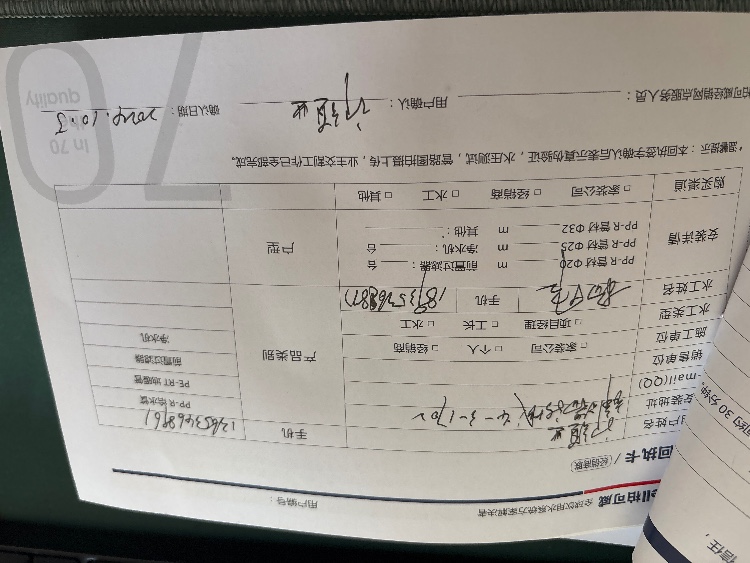 ell柏可威 全球饮用水系统方案解决者
用户编号：
回执卡 / 经销商联
用户姓名 手机
安装地址 4-3-1702
-mail(QQ)
销售单位
施工单位 □ 家装公司 □ 个人 □ 经销商
水工类型 □ 项目经理 □ 工长 □ 水工
水工姓名 手机
产品类别
PP-R 给水管
PE-RT 地暖管
前置过滤器
净水机
安装详情
PP-R 管材 Φ20 m 前置过滤器： 台
PP-R 管材 Φ25 m 净水机： 台
PP-R 管材 Φ32 m 其他：
户型
购买渠道 □ 家装公司 □ 经销商 □ 水工 □ 其他
*温馨提示：本回执签字确认后表示真伪验证，水压测试，管路图拍摄上传，业主交割工作已全部完成。
柏可威经销网点服务人员： 用户确认： 确认日期： 2024.10.5
70
In 70
quality
约30分钟,
信任,